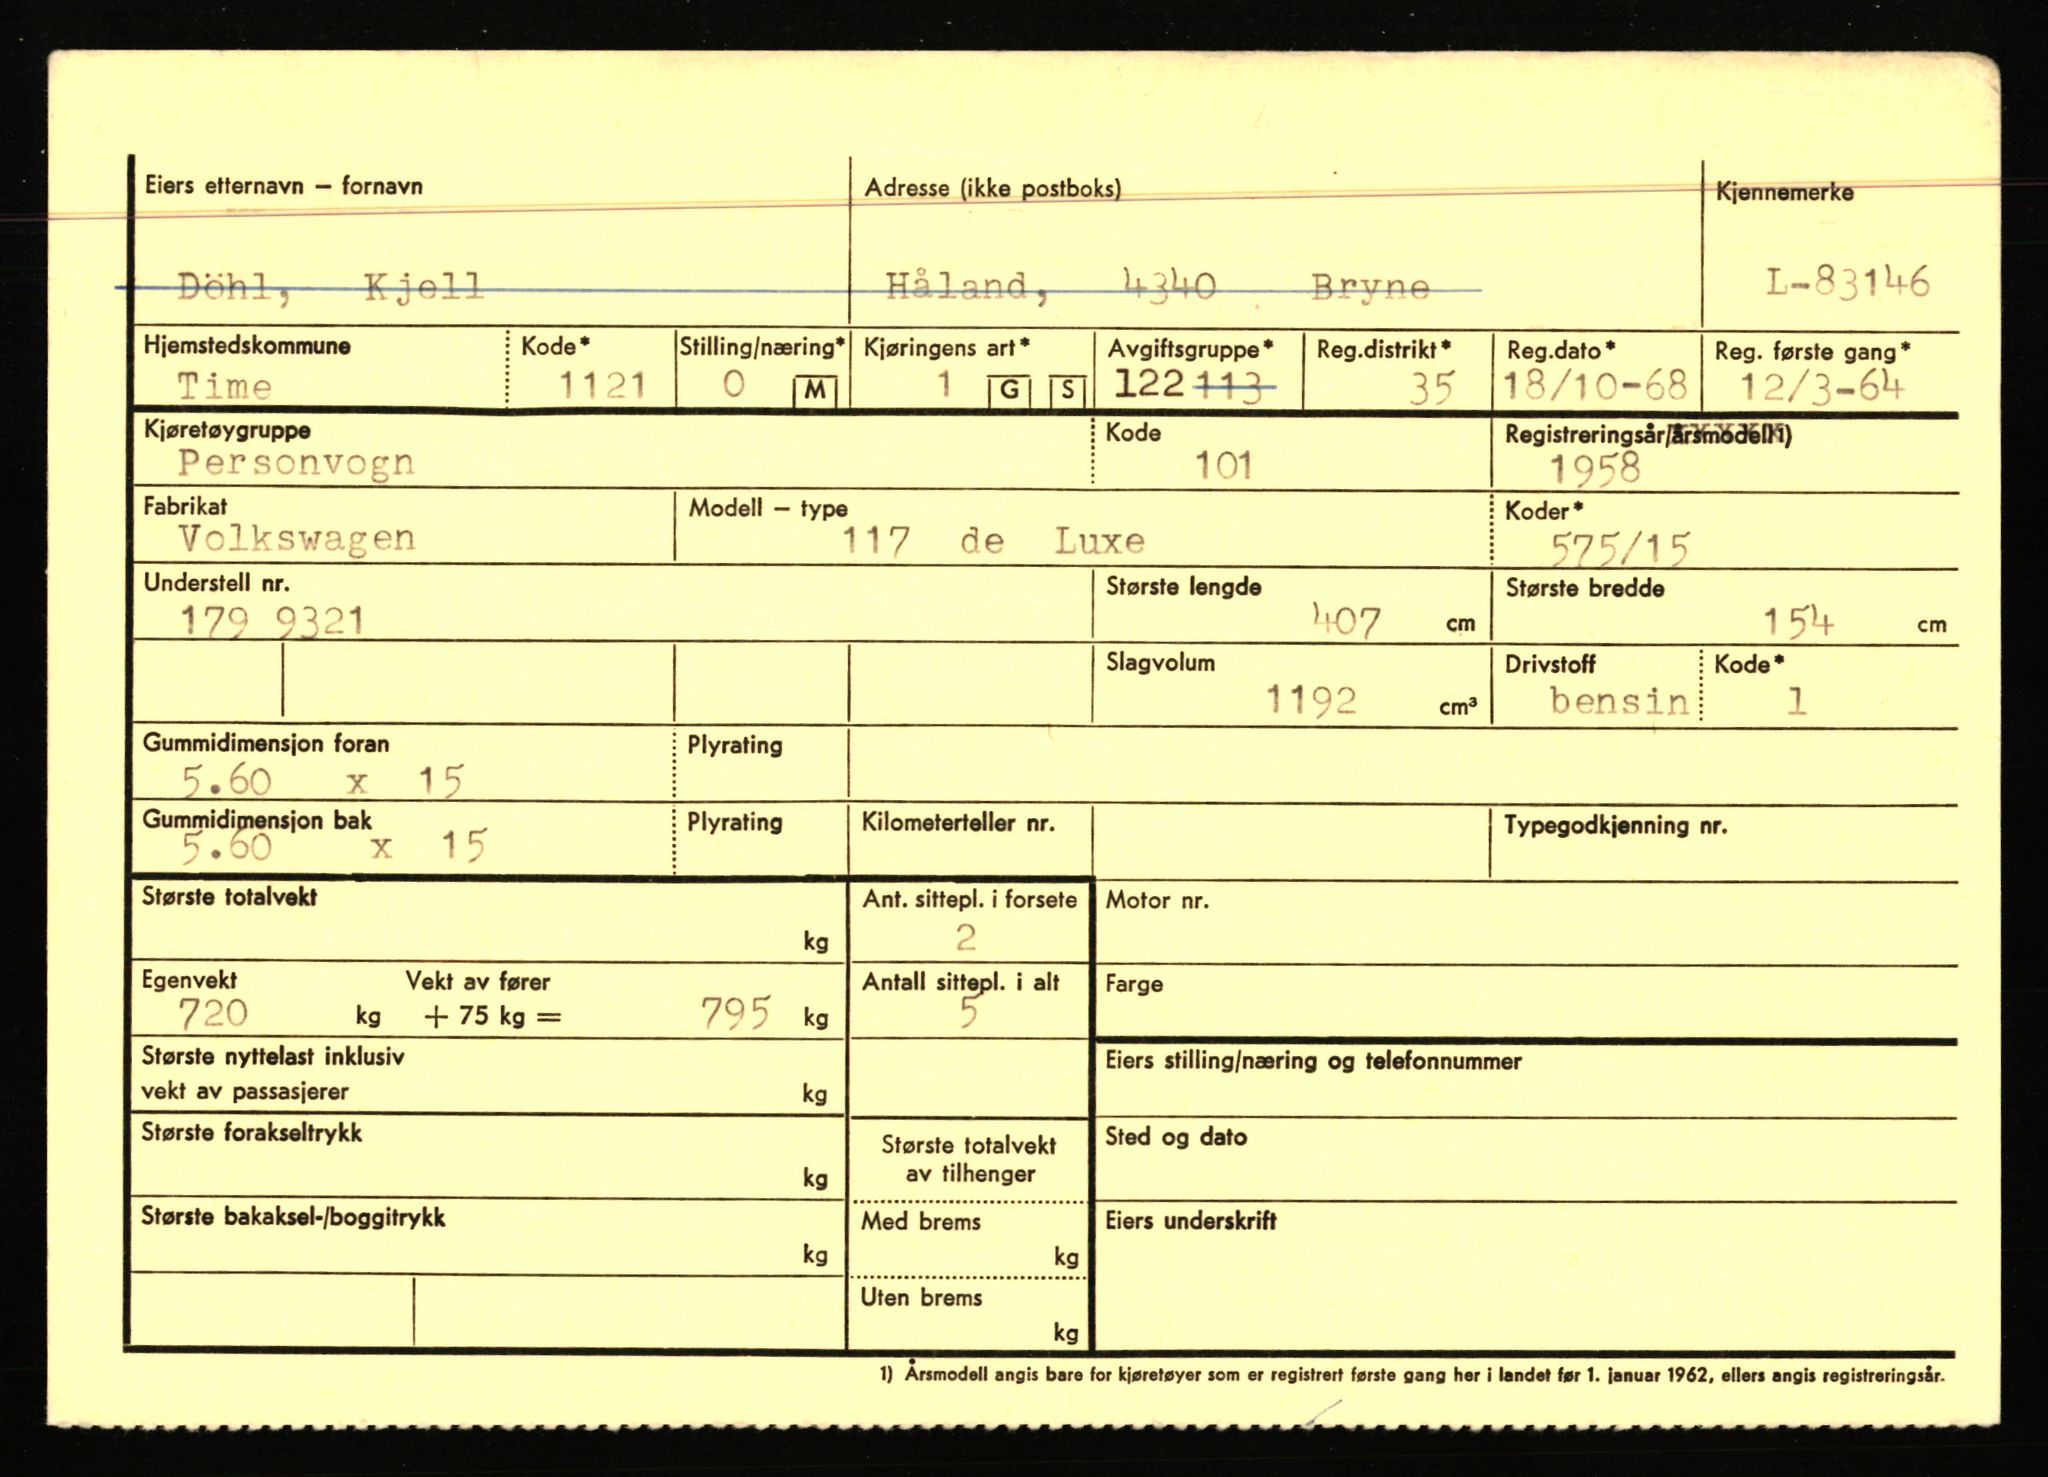 Eiers etternavn – fornavn Adresse (ikke postboks) Kjennemerke
Döhl, Kjell Håland, 4340 Bryne L-83146
Hjemstedskommune Kode* Stilling/næring* Kjøringens art* Avgiftsgruppe* Reg.distrikt* Reg.dato* Reg. første gang*
Time 1121 0 M 1 G S 122 113 35 18/10-68 12/3-64
Kjøretøygruppe Kode Registreringsår/årsmodell1)
Personvogn 101 1958
Fabrikat Modell – type Koder*
Volkswagen 117 de Luxe 575/15
Understell nr. Største lengde Største bredde
179 9321 407 cm 154 cm
Slagvolum Drivstoff Kode*
1192 cm³ bensin 1
Gummidimensjon foran Plyrating
5.60 x 15
Gummidimensjon bak Plyrating Kilometerteller nr. Typegodkjenning nr.
5.60 x 15
Største totalvekt Ant. sittepl. i forsete Motor nr.
kg 2
Egenvekt Vekt av fører Antall sittepl. i alt Farge
720 kg + 75 kg = 795 kg 5
Største nyttelast inklusiv Eiers stilling/næring og telefonnummer
vekt av passasjerer kg
Største forakseltrykk Største totalvekt Sted og dato
kg av tilhenger
Største bakaksel-/boggitrykk Med brems Eiers underskrift
kg kg
Uten brems
kg
1) Årsmodell angis bare for kjøretøyer som er registrert første gang her i landet før 1. januar 1962, ellers angis registreringsår.